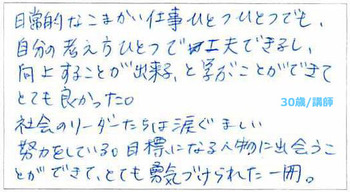 日常的なこまかい仕事ひとつひとつでも、
自分の考え方ひとつで工夫できるし、
向上することが出来る、と学ぶことができて
とても良かった。
30歳/講師
社会のリーダーたちは涙ぐましい
努力をしている。目標になる人物に出会うこ
とができて、とても勇気づけられた一冊。